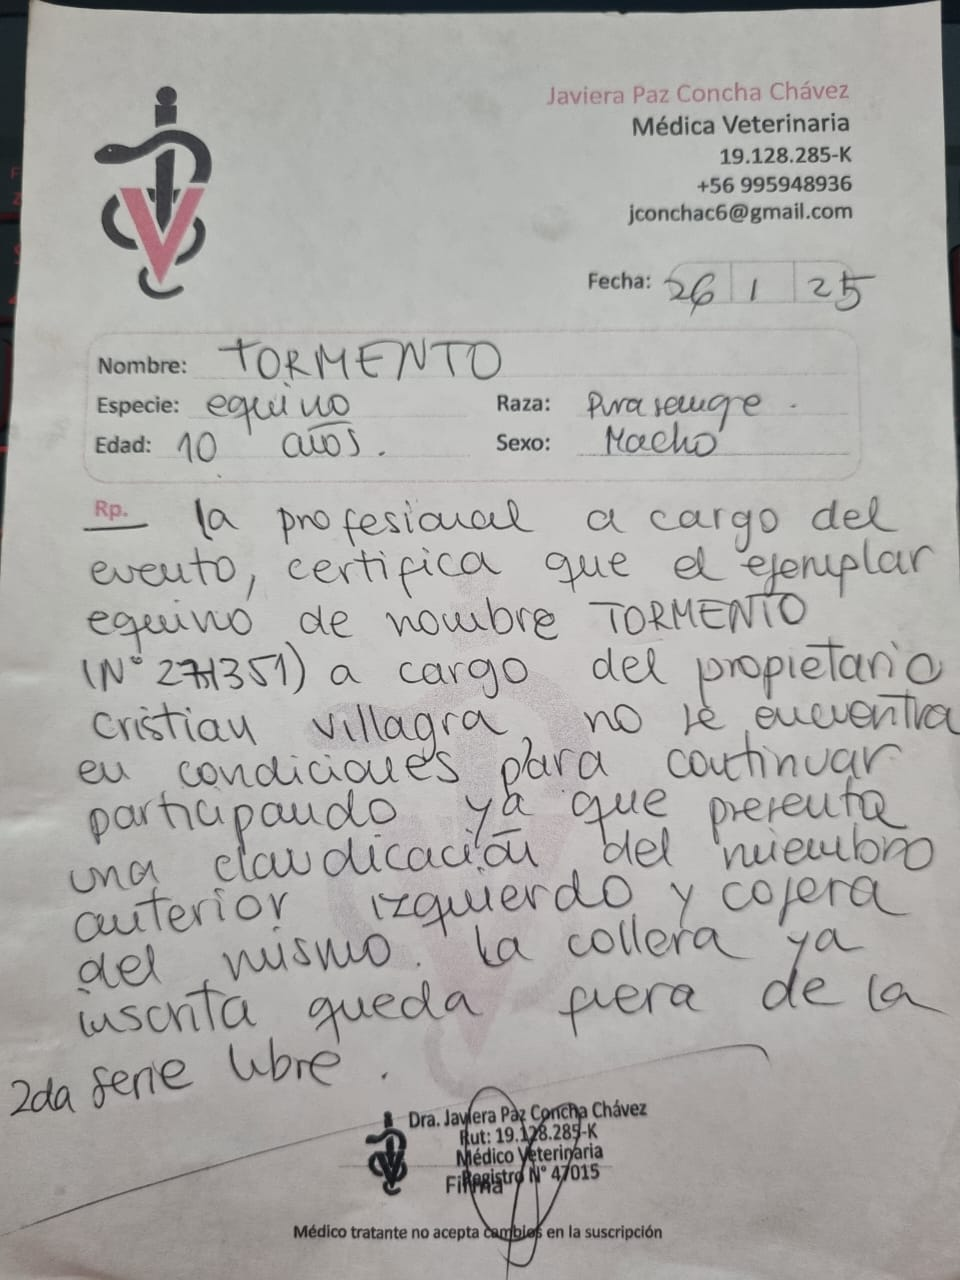 Javiera Paz Concha Chávez
Médica Veterinaria
19.128.285-K
+56 995948936
jconchac6@gmail.com
Fecha: 26 1 25
Nombre: TORMENTO
Especie: equino Raza: Pura sangre.
Edad: 10 años. Sexo: Macho
Rp. la profesional a cargo del
evento, certifica que el ejemplar
equino de nombre TORMENTO
(N° 271351) a cargo del propietario
Cristian Villagra, no se encuentra
en condiciones para continuar
participando ya que presenta
una claudicación del miembro
anterior izquierdo y cojera
del mismo. La collera ya
inscrita queda fuera de la
2da serie libre.
Dra. Javiera Paz Concha Chávez
Rut: 19.128.285-K
Médico Veterinaria
Registro N° 47015
Firma
Médico tratante no acepta cambios en la suscripción